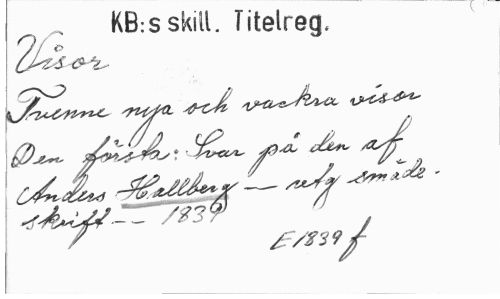 KB:s skill. Titelreg.
Visor
Tvenne nya och vackra visor
Den första: Svar på den af
Anders Hallberg — utg smäde-
skrift —— 1839
E 1839 f